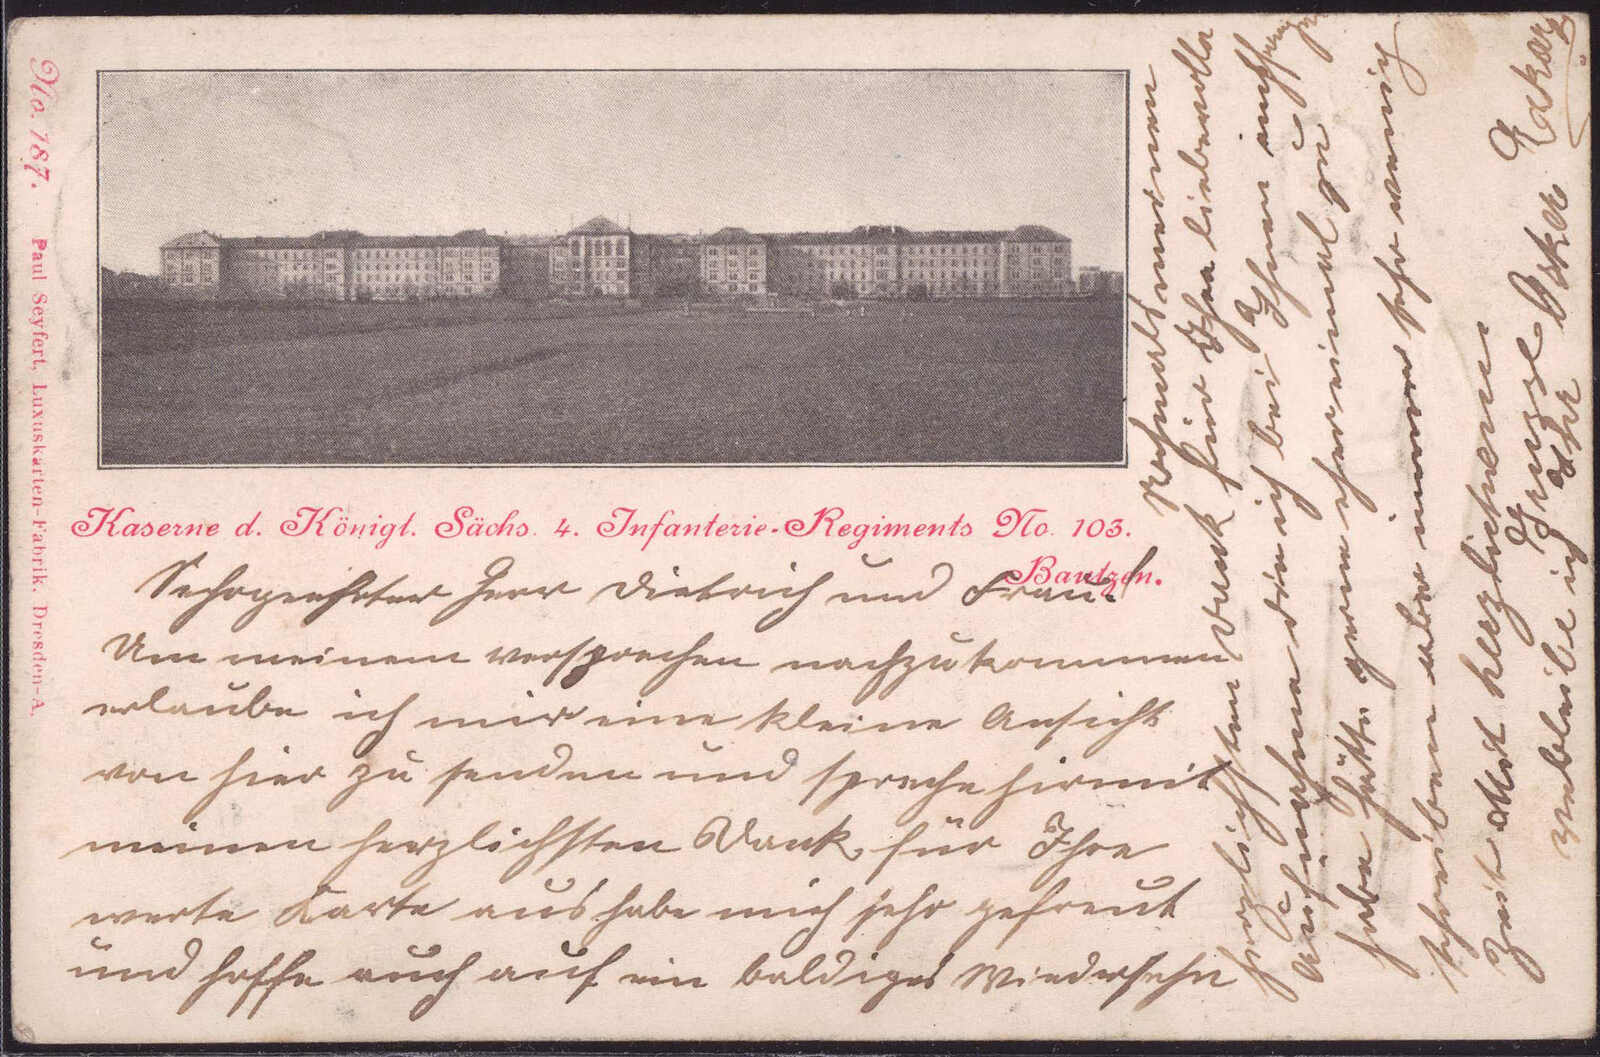 No. 187. Paul Seyfert, Luxuskarten-Fabrik, Dresden-A.
Kaserne d. Königl. Sächs. 4. Infanterie-Regiments No. 103.
Bautzen.
Sehrgeehrter Herr Dietrich und Frau!
Um meinem versprechen nachzukommen
erlaube ich mir eine kleine Ansicht
von hier zu senden und spreche hirmit
meinen herzlichsten Dank, für Ihre
werte Karte aus habe mich sehr gefreut
und hoffe auch auf ein baldiges Wiedersehn
Nochmals meinen
herzlichsten Dank für Ihre liebevolle
Aufnahme die ich bei Ihnen
habe hätte gerne ehr einmal zu
schreiben aber immer sehr wenig
Zeit Mit herzlichem
Grusse
verbleibe ich Ihr Oskar